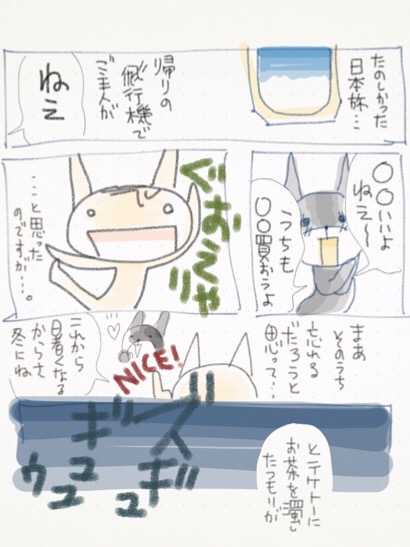 たのしかった
日本旅…
帰りの
飛行機で
ご主人が
ねえ
〇〇いいよ
ねえ〜
うちも
〇〇買おうよ
ぐおえや
…と思った
のですが…。
まあ
そのうち
忘れる
だろうと
思って…
NICE!
これから
暑くなる
からさ
冬にね
とテケトーに
お茶を濁し
たつもりが
ズギュ
ギュ
ウユユ